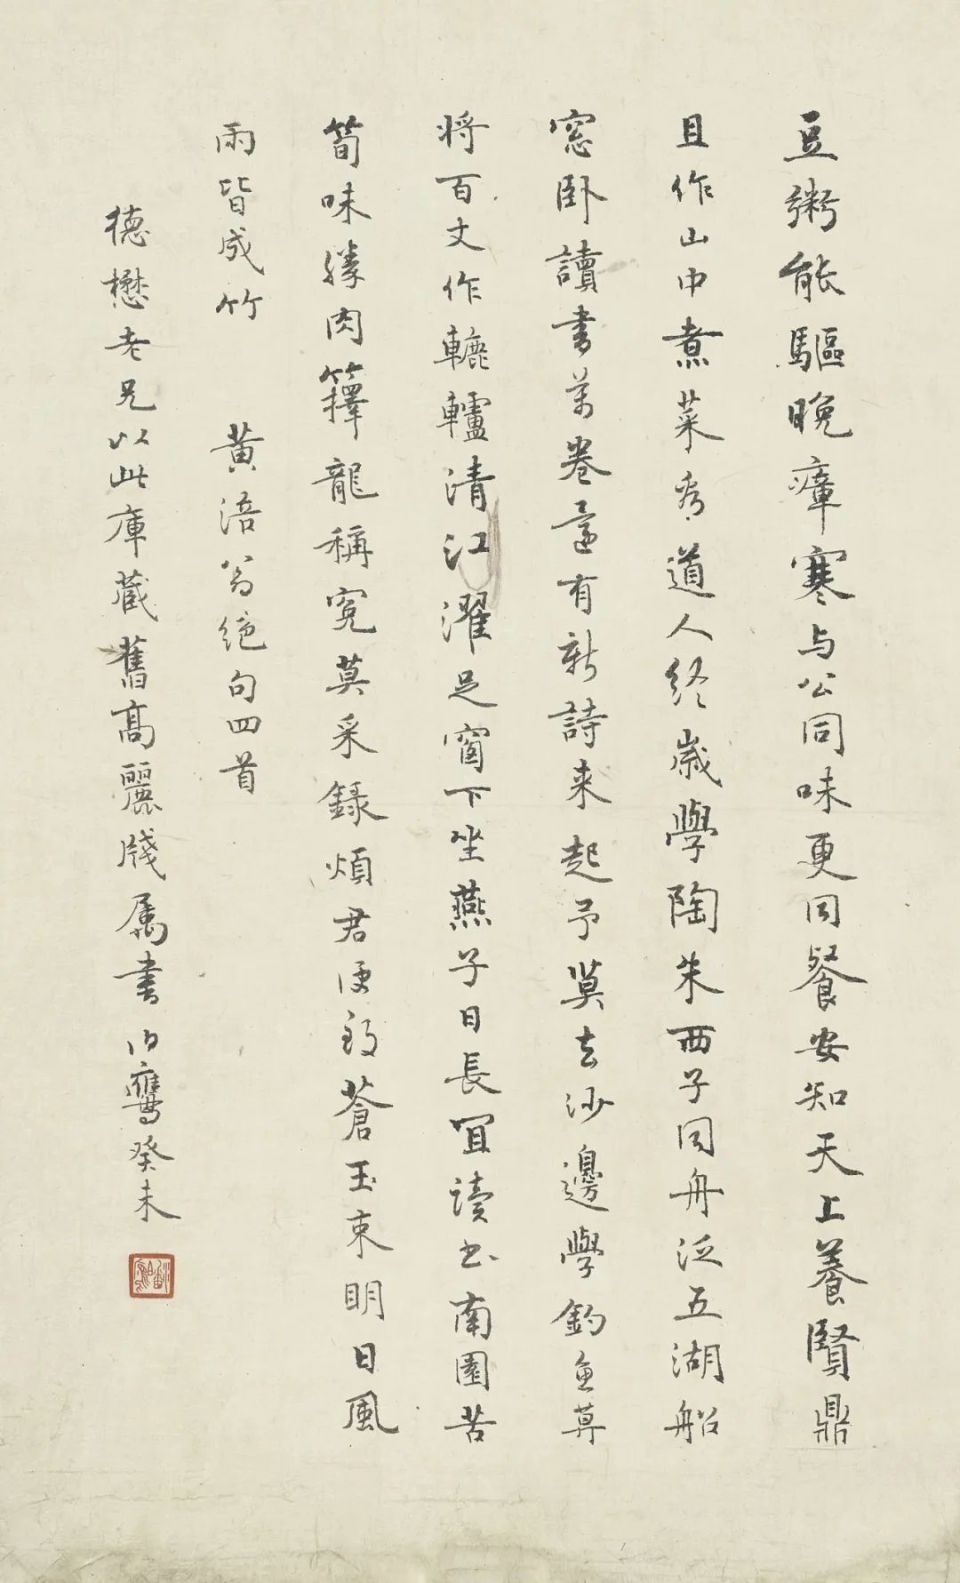 豆粥能驅晚瘴寒与公同味更同餐安知天上養賢鼎
且作山中煮菜看道人終歲學陶朱西子同舟泛五湖船
窓卧讀書萬卷還有新詩来起予莫去沙邊學釣魚莫
将百丈作轆轤清江濯足窗下坐燕子日長宜讀书南園苦
筍味勝肉籜龍稱冤莫采錄煩君便致蒼玉束明日風
雨皆成竹 黃涪翁絕句四首
德懋老兄以此庫藏舊高麗牋属書 伯鷹癸未